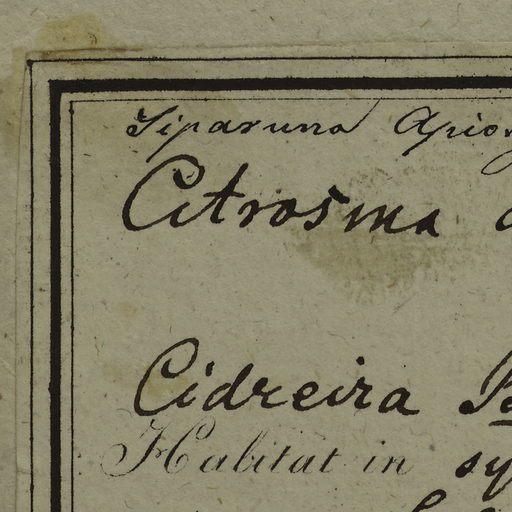 Siparuna Apios
Citrosma
Cidreira
Habitat in sy